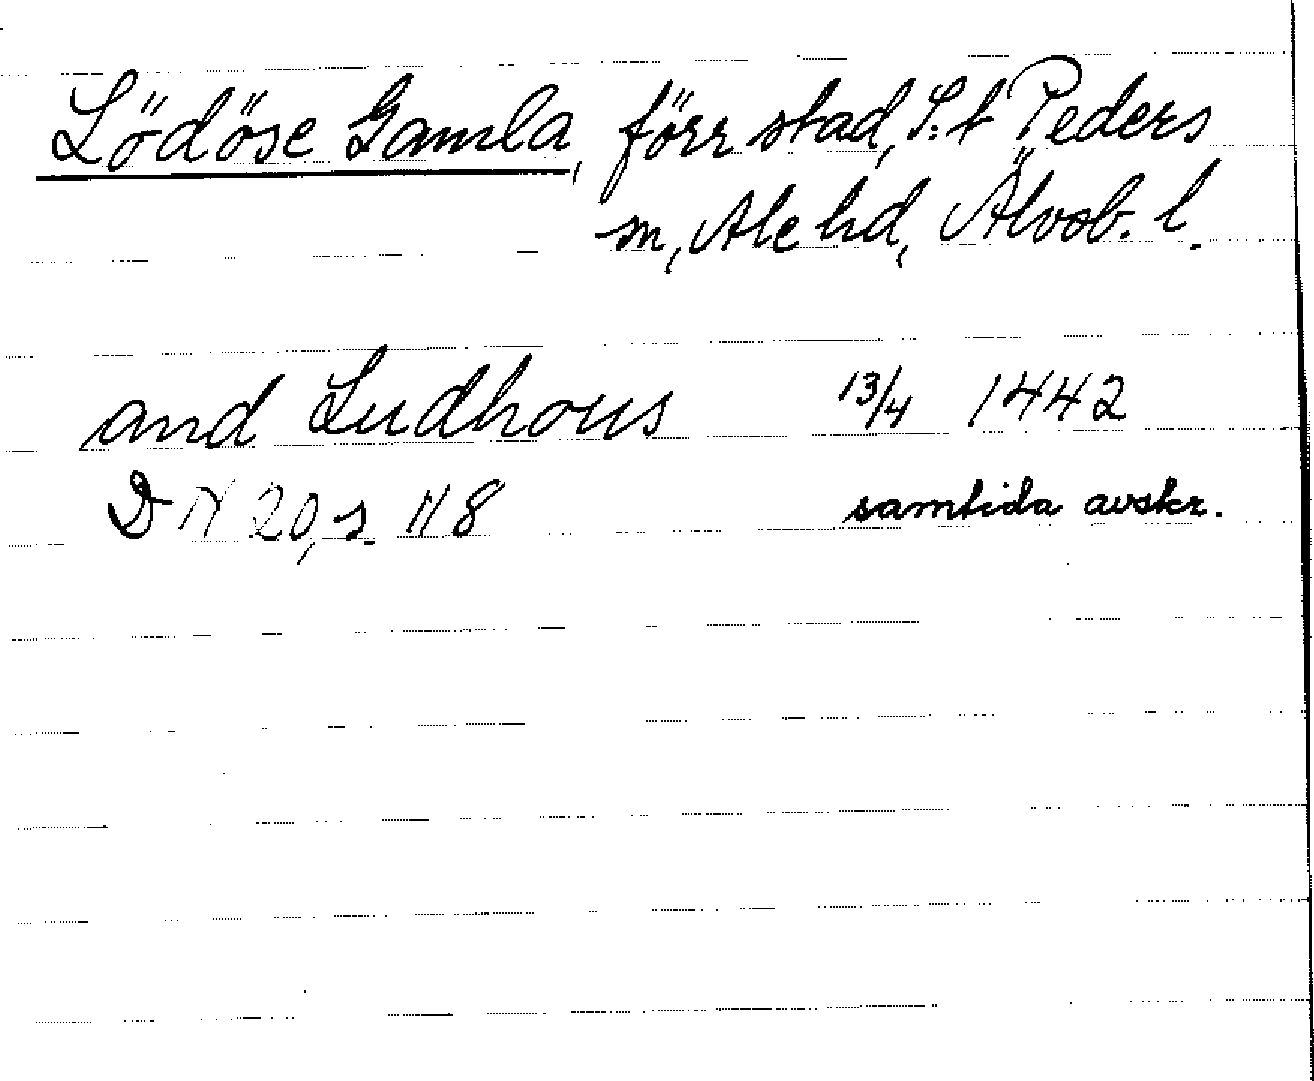 Lödöse Gamla, förr stad, S:t Peders
sn, Ale hd, Älvsb. l.
and Ludhous 13/4 1442
DN 20, s. 118 samtida avskr.